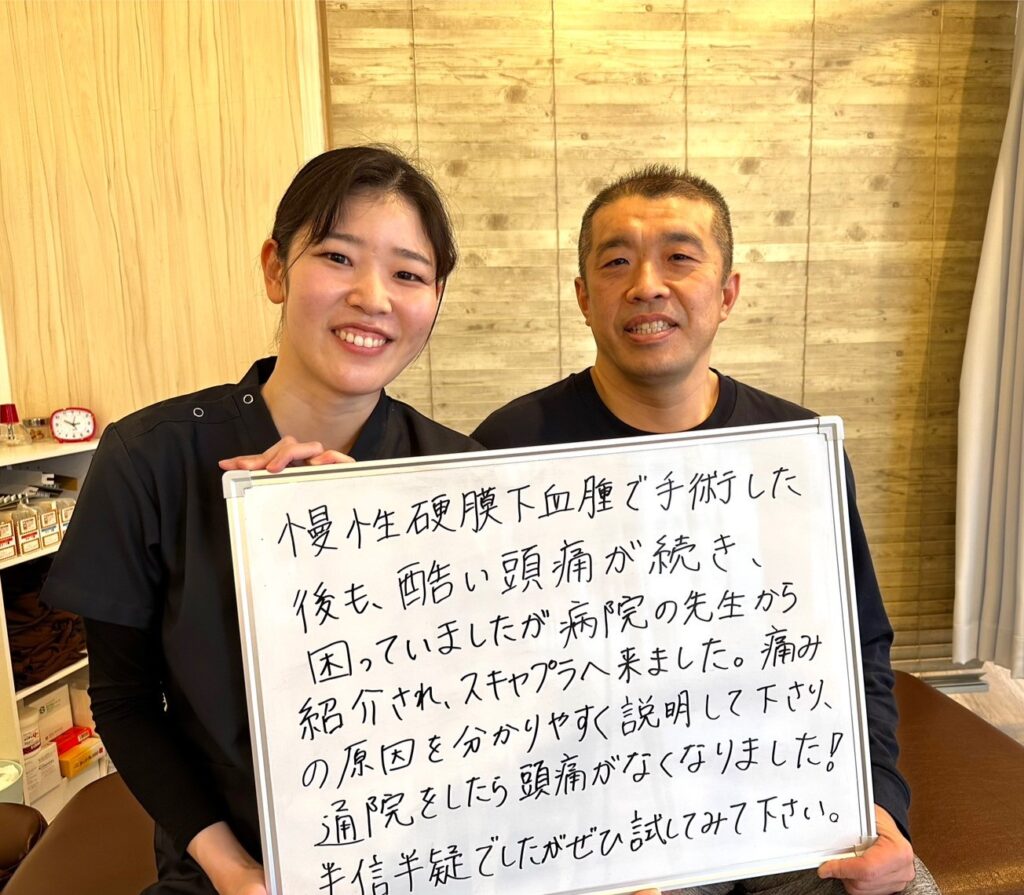 慢性硬膜下血腫で手術した
後も、酷い頭痛が続き、
困っていましたが病院の先生から
紹介され、スキャプラへ来ました。痛み
の原因を分かりやすく説明して下さり、
通院をしたら頭痛がなくなりました!
半信半疑でしたがぜひ試してみて下さい。